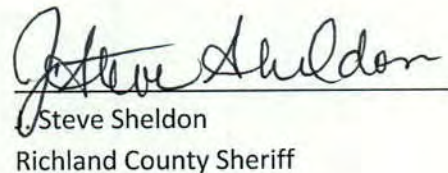 J. Steve Sheldon
J. Steve Sheldon
Richland County Sheriff